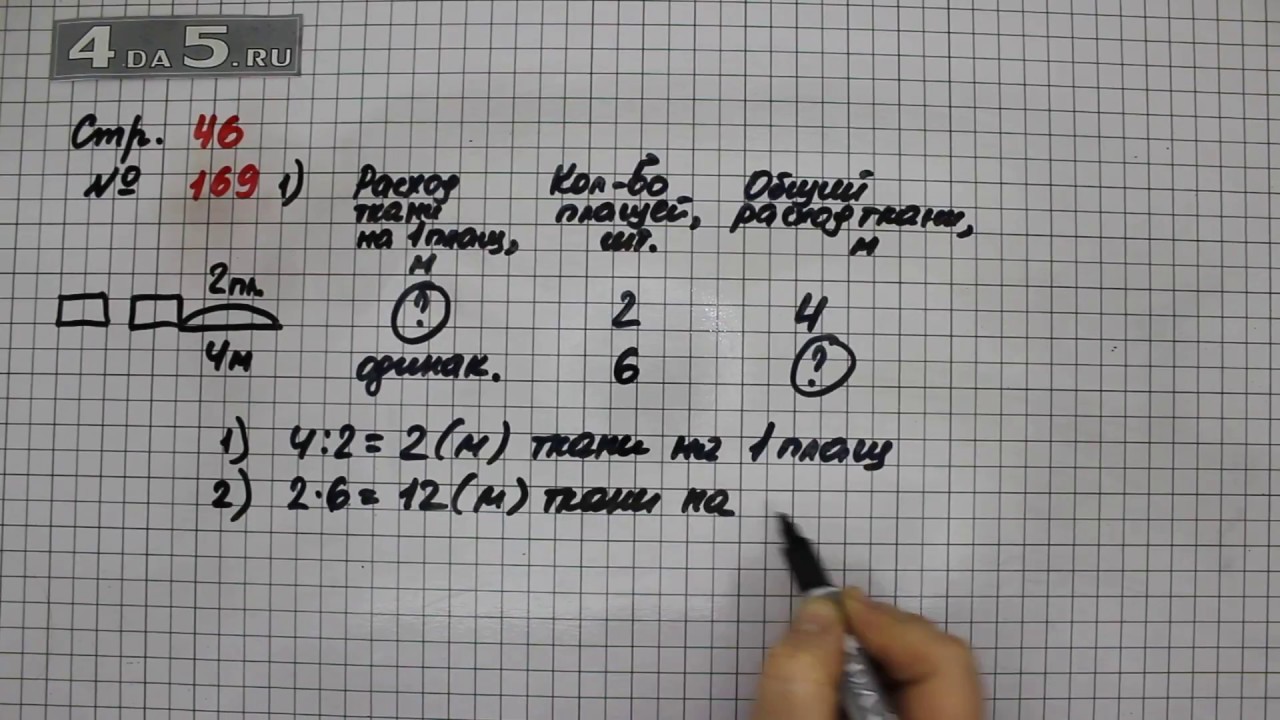 4DA5.RU
Стр. 46
№ 169 1)
Расход ткани на 1 плащ, м
Кол-во плащей, шт.
Общий расход ткани, м
2 пл.
4 м
? 2 4
одинак. 6 ?
1) 4:2=2(м) ткани на 1 плащ
2) 2·6=12(м) ткани на